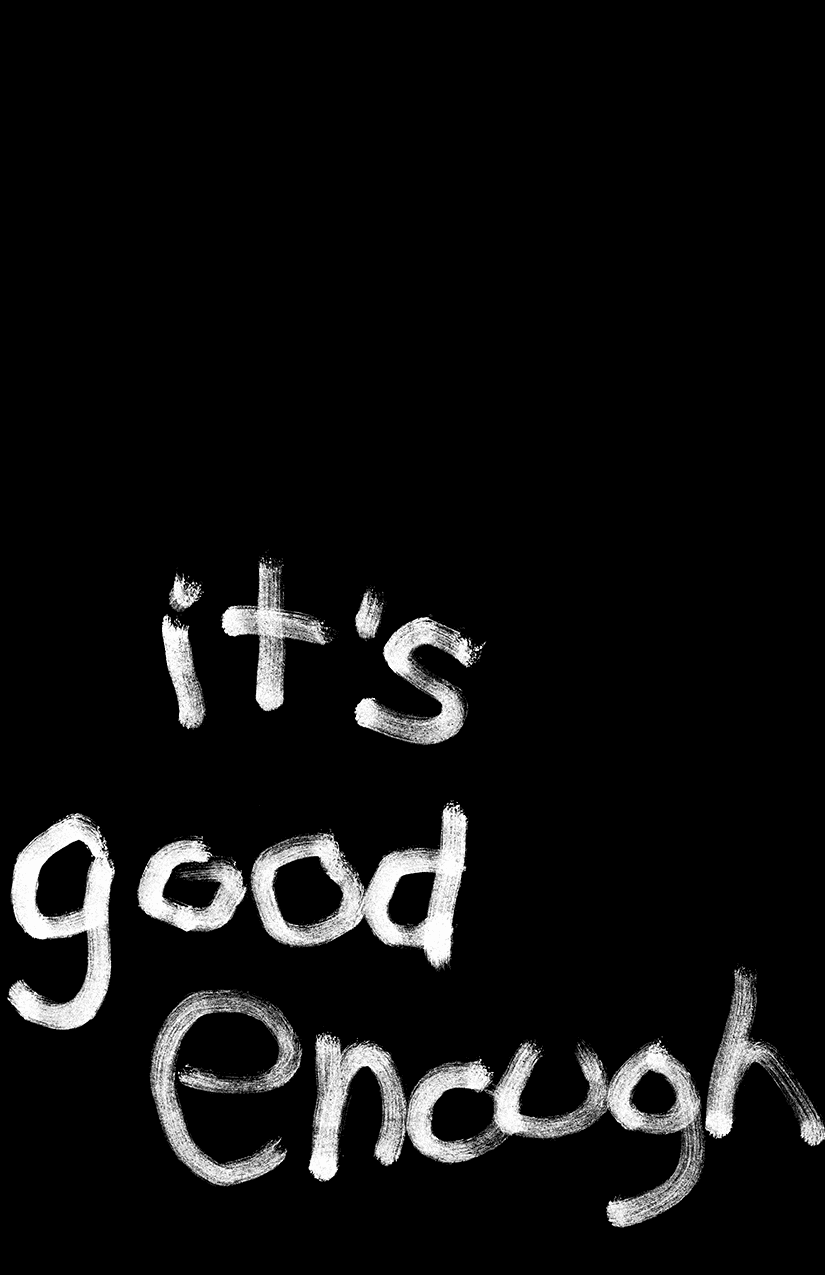 it's
good
enough